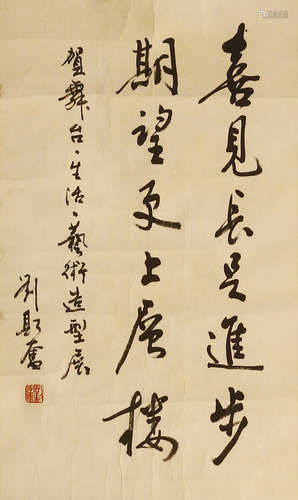 喜見長足進步
期望更上层楼
賀舞台、生活、藝術造型展
劉
奮